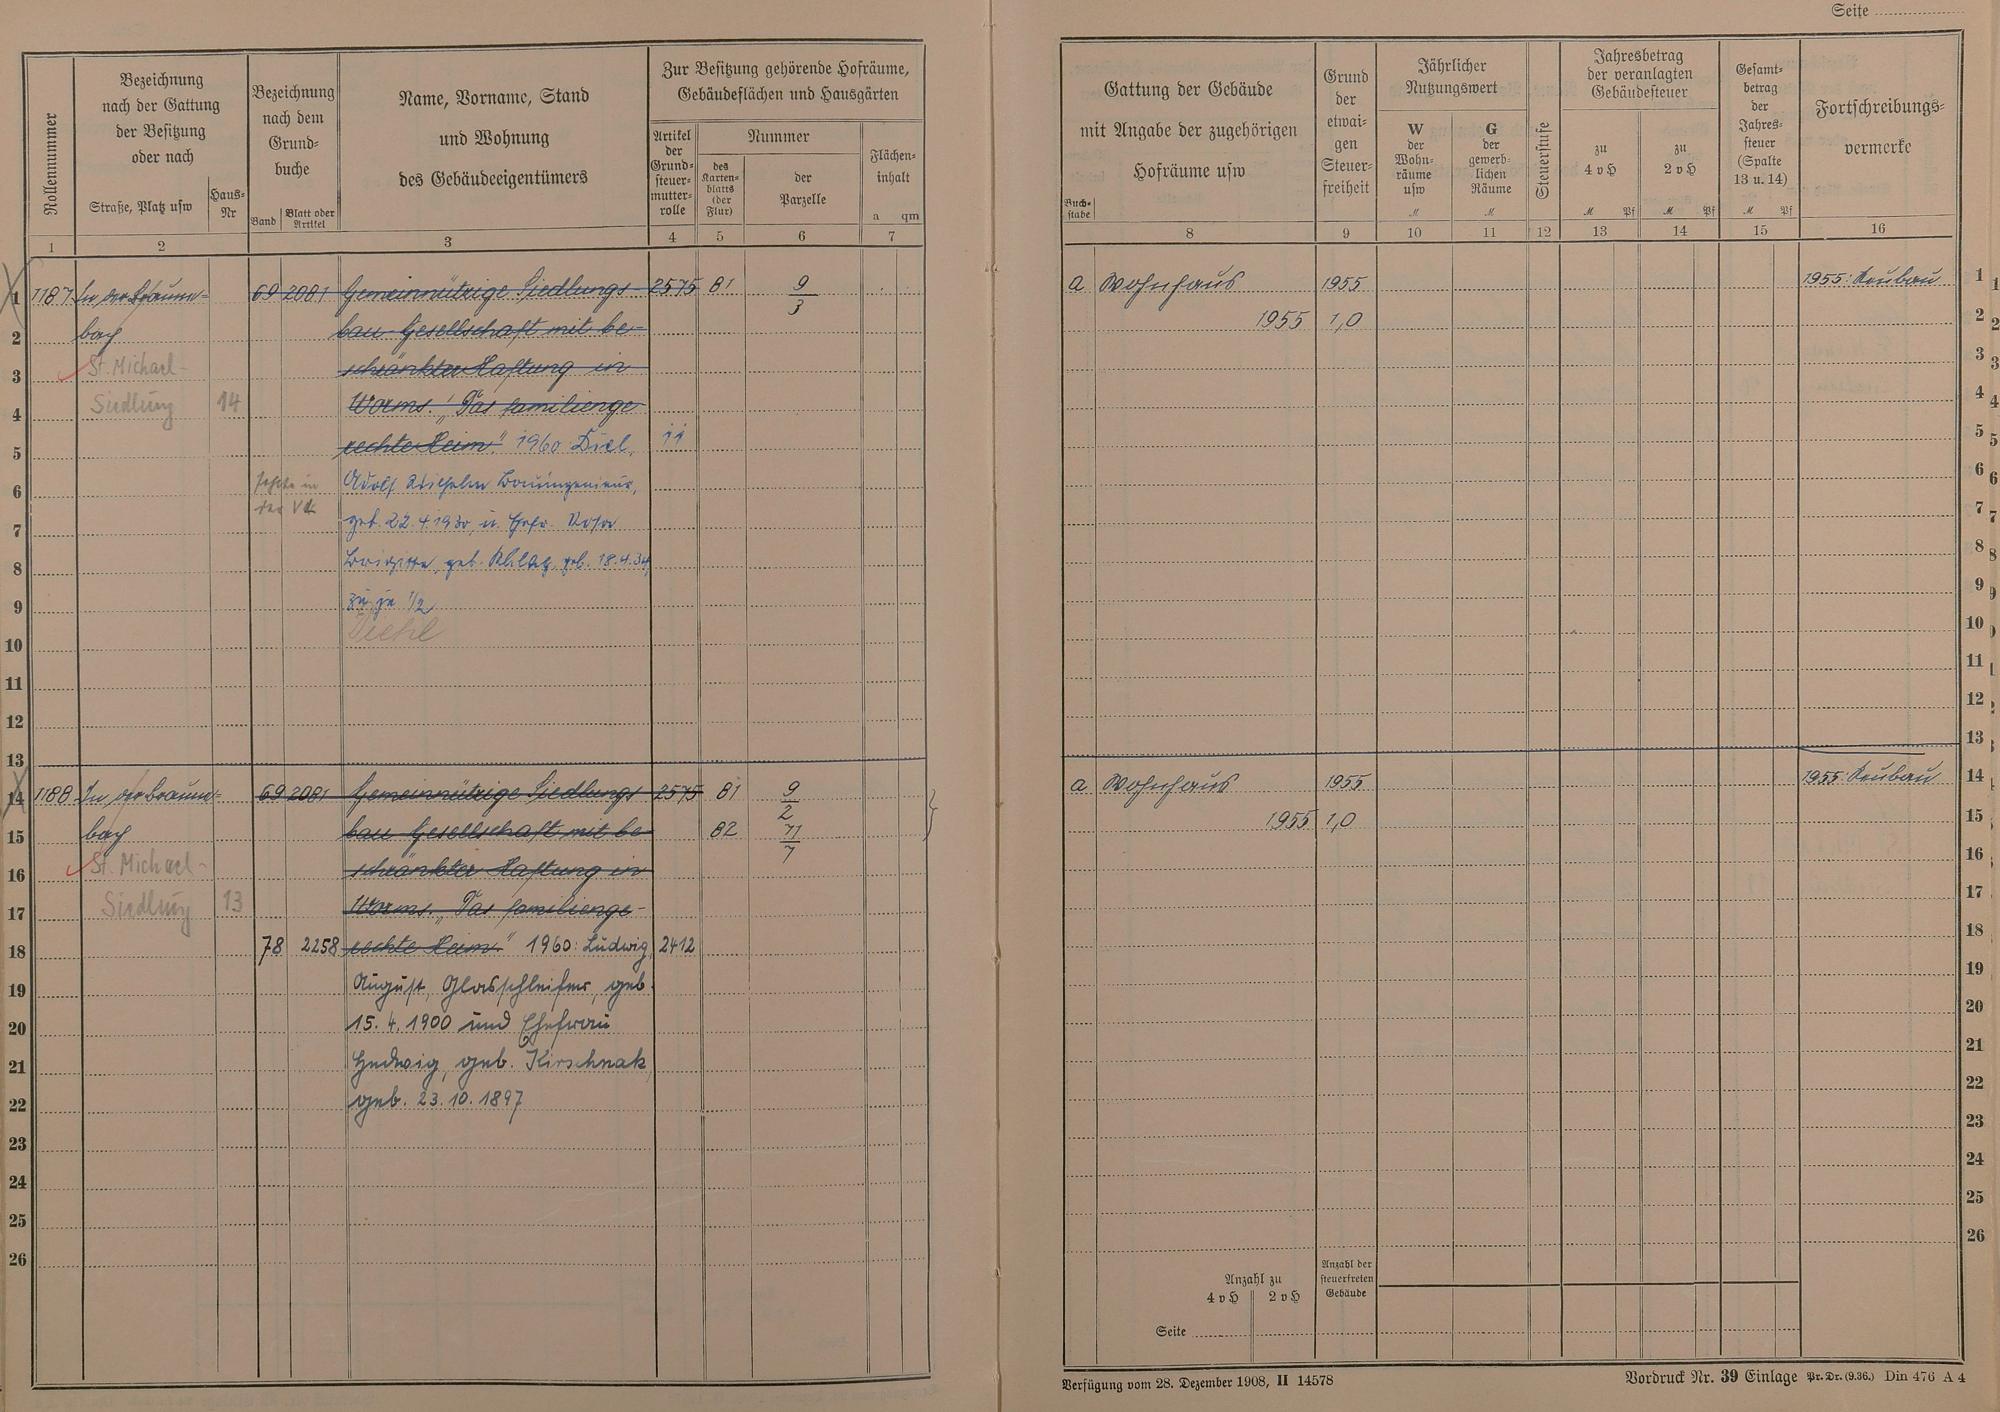 Seite
Rollennummer
Bezeichnung
nach der Gattung
der Besitzung
oder nach
Straße, Platz usw
Haus-
Nr
Bezeichnung
nach dem
Grund-
buche
Band
Blatt oder
Artikel
Name, Vorname, Stand
und Wohnung
des Gebäudeeigentümers
Zur Besitzung gehörende Hofräume,
Gebäudeflächen und Hausgärten
Artikel
der
Grund-
steuer-
mutter-
rolle
Nummer
des
Karten-
blatts
(der
Flur)
der
Parzelle
Flächen-
inhalt
a qm
1 2 3 4 5 6 7
Gattung der Gebäude
mit Angabe der zugehörigen
Hofräume usw
Buch-
stabe
Grund
der
etwai-
gen
Steuer-
freiheit
Jährlicher
Nutzungswert
W
der
Wohn-
räume
usw
M
G
der
gewerb-
lichen
Räume
M
Steuerstufe
Jahresbetrag
der veranlagten
Gebäudesteuer
zu
4 v H
M Pf
zu
2 v H
M Pf
Gesamt-
betrag
der
Jahres-
steuer
(Spalte
13 u. 14)
M Pf
Fortschreibungs-
vermerke
8 9 10 11 12 13 14 15 16
1 1187 In der Braune- 69 2081 Gemeinnützige Siedlungs- 2575 81 9/3 a Wohnhaus 1955 1955: Neubau 1
2 bach bau-Gesellschaft mit be- 1955 1,0 2
3 St. Michael- schränkter Haftung in 3
4 Siedlung 14 Worms. "Das familienge- 4
5 rechte Heim." 1960: Diel, 5
6 fehlte in Adolf Wilhelm Bauingenieur, 6
der
7 geb. 22.4.1930, u. Ehefr. Rosa 7
8 Brigitte, geb. geb. 18.4.34, 8
9 zu je 1/2 9
Diehl
10 10
11 11
12 12
13 13
14 1188 In der Braune- 69 2081 Gemeinnützige Siedlungs- 2575 81 9/2 a Wohnhaus 1955 1955: Neubau 14
15 bach bau-Gesellschaft mit be- 82 71/7 1955 1,0 15
16 St. Michael- schränkter Haftung in 16
17 Siedlung 13 Worms. "Das familienge- 17
18 78 2258 rechte Heim." 1960: Ludwig, 2412 18
19 August, Glasschleifer, geb. 19
20 15. 4. 1900 und Ehefrau 20
21 Hedwig, geb. Kirschnak, 21
22 geb. 23. 10. 1897 22
23 23
24 24
25 25
26 26
Anzahl zu
4 v H 2 v H
Anzahl der
steuerfreien
Gebäude
Seite
Verfügung vom 28. Dezember 1908, II 14578
Vordruck Nr. 39 Einlage Pr. Dr. (9.36.) Din 476 A 4